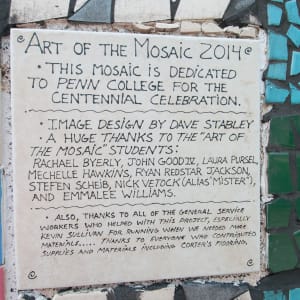 ART OF THE MOSAIC 2014
• THIS MOSAIC IS DEDICATED
TO PENN COLLEGE FOR THE
CENTENNIAL CELEBRATION.
• IMAGE DESIGN BY DAVE STABLEY
• A HUGE THANKS TO THE "ART OF
THE MOSAIC" STUDENTS:
RACHAEL BYERLY, JOHN GOOD IV, LAURA PURSEL,
MECHELLE HAWKINS, RYAN REDSTAR JACKSON,
STEFEN SCHEIB, NICK VETOCK (ALIAS "MISTER"),
AND EMMALEE WILLIAMS.
• ALSO, THANKS TO ALL OF THE GENERAL SERVICE
WORKERS WHO HELPED WITH THIS PROJECT, ESPECIALLY
KEVIN SULLIVAN FOR RUNNING WHEN WE NEEDED MORE
MATERIALS..... THANKS TO EVERYONE WHO CONTRIBUTED
SUPPLIES AND MATERIALS INCLUDING FLOORING.